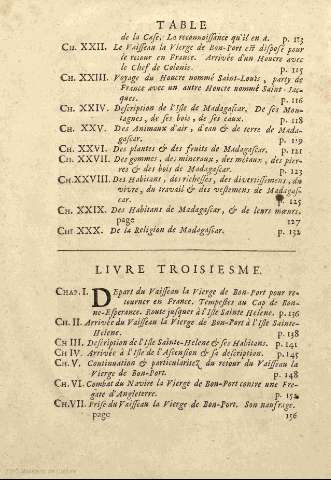 TABLE
de la Case. La reconnoissance qu'il en a. p. 113
CH. XXII. Le Vaisseau la Vierge de Bon-Port est disposé pour
le retour en France. Arrivée d'un Houcre avec
le Chef de Colonie. p. 115
CH. XXIII. Voyage du Houcre nommé Saint-Louis, party de
France avec un autre Houcre nommé Saint-Jac-
ques. p. 116
CH. XXIV. Description de l'Isle de Madagascar. De ses Mon-
tagnes, de ses bois, de ses eaux. p. 118
CH. XXV. Des Animaux d'air, d'eau & de terre de Mada-
gascar. p. 119
CH. XXVI. Des plantes & des fruits de Madagascar. p. 121
CH. XXVII. Des gommes, des mineraux, des métaux, des pier-
res & des bois de Madagascar. p. 123
CH. XXVIII. Des Habitans, des richesses, des divertissemens, du
vivre, du travail & des vestemens de Madagas-
car. p. 125
CH. XXIX. Des Habitans de Madagascar, & de leurs mœurs.
page 127
CH. XXX. De la Religion de Madagascar. p. 132
LIVRE TROISIESME.
CHAP. I. DEpart du Vaisseau la Vierge de Bon-Port pour re-
tourner en France. Tempestes au Cap de Bon-
ne-Esperance. Route jusques à l'Isle Sainte Helene. p. 136
CH. II. Arrivée du Vaisseau la Vierge de Bon-Port à l'Isle Sainte-
Helene. p. 138
CH III. Description de l'Isle Sainte-Helene & ses Habitans. p. 141
CH IV. Arrivée à l'Isle de l'Ascension & sa description. p. 145
CH. V. Continuation & particularitez du retour du Vaisseau la
Vierge de Bon-Port. p. 148
CH. VI. Combat du Navire la Vierge de Bon-Port contre une Fre-
gate d'Angleterre. p. 152
CH. VII. Prise du Vaisseau la Vierge de Bon-Port. Son naufrage.
page 156